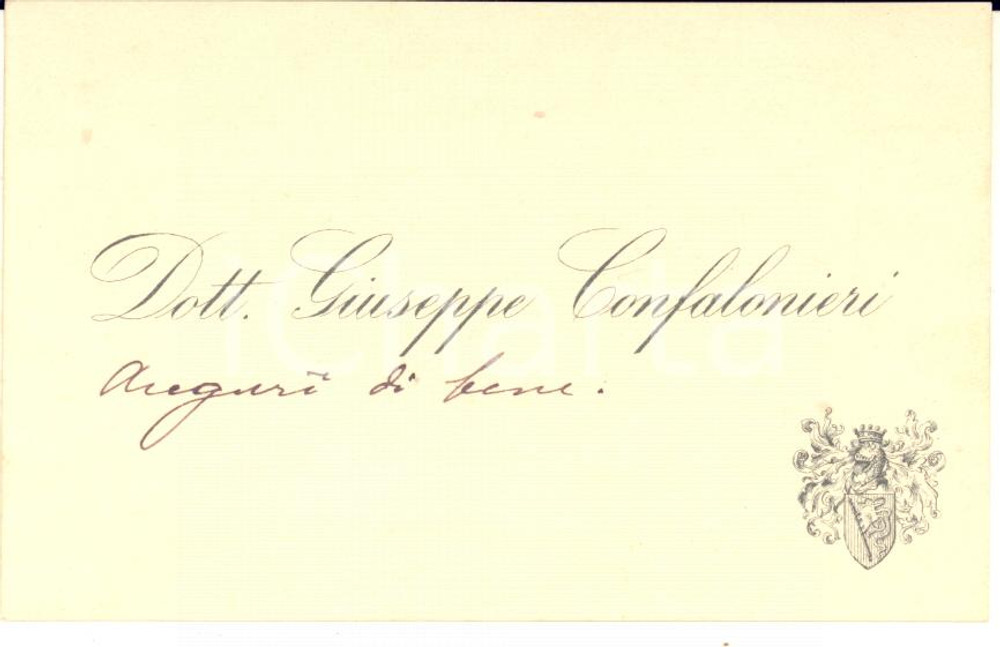 Dott. Giuseppe Confalonieri
Auguri di bene.
iCharta